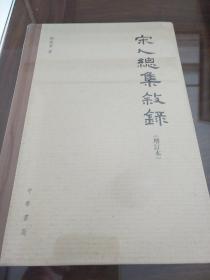 宋人總集敘録
（增訂本）
祝尚書 著
中華書局